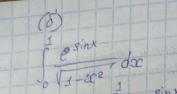 б)
∫₀¹ e^{sinx} / √(1-x²) dx